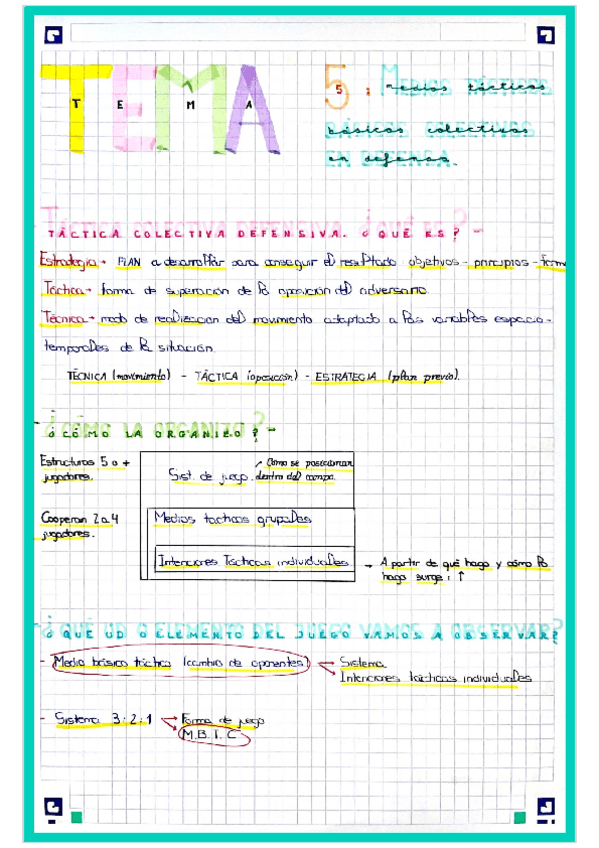 TEMA 5: Medios tácticos
básicos colectivos
en defensa.
TÁCTICA COLECTIVA DEFENSIVA. ¿QUÉ ES?-
Estrategia → PLAN a desarrollar para conseguir el resultado objetivos - principios - form
Táctica → forma de superación de la oposición del adversario.
Técnica → modo de realización del movimiento adaptado a las variables espacio-
temporales de la situación.
TÉCNICA (movimiento) - TÁCTICA (oposición) - ESTRATEGIA (plan previo).
- ¿CÓMO LA ORGANIZO?-
Estructuras 5 o +
jugadores.
Sist. de juego.
Cómo se posicionan
dentro del campo.
Cooperan 2 a 4
jugadores.
Medios tacticos grupales
Intenciones Tácticas individuales → A partir de qué hago y cómo lo
hago surge: ↑
- ¿QUÉ UD O ELEMENTO DEL JUEGO VAMOS A OBSERVAR?
- Medio básico táctico (cambio de oponentes) → Sistema
→ Intenciones tácticas individuales
- Sistema 3:2:1 → Forma de juego
→ M.B.T.C